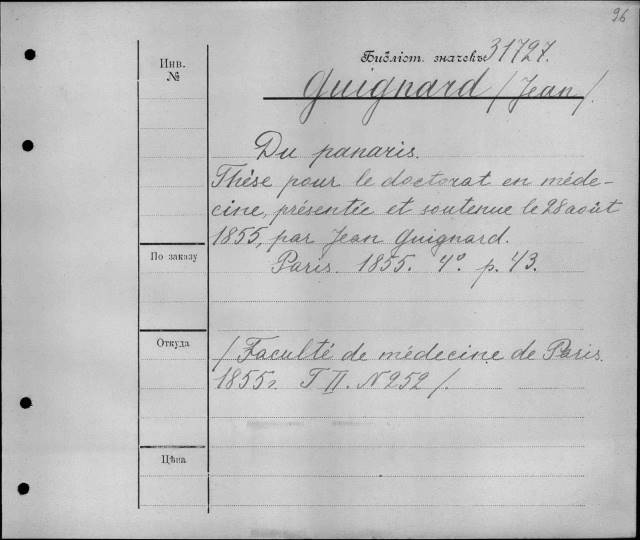 96
Инв.
№
Библіот. значекъ 31727.
Guignard /Jean/.
Du panaris.
Thèse pour le doctorat en méde-
cine, présentée et soutenue le 28 août
1855, par Jean Guignard.
Paris. 1855. 4º. p. 43.
По заказу
Откуда
/Faculté de médecine de Paris.
1855г. T II. N 252/.
Цѣна